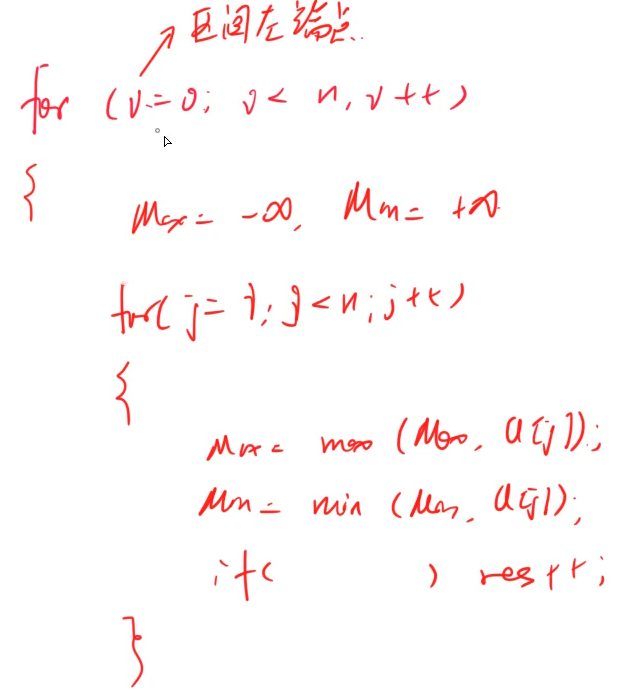 区间左端点
for (i=0; i< n, i++)
{
Max= -∞, Min= +∞
for(j= i; j<n; j++)
{
Max= max (Max, a[j]);
Min= min (Min, a[j]);
if( ) res++;
}